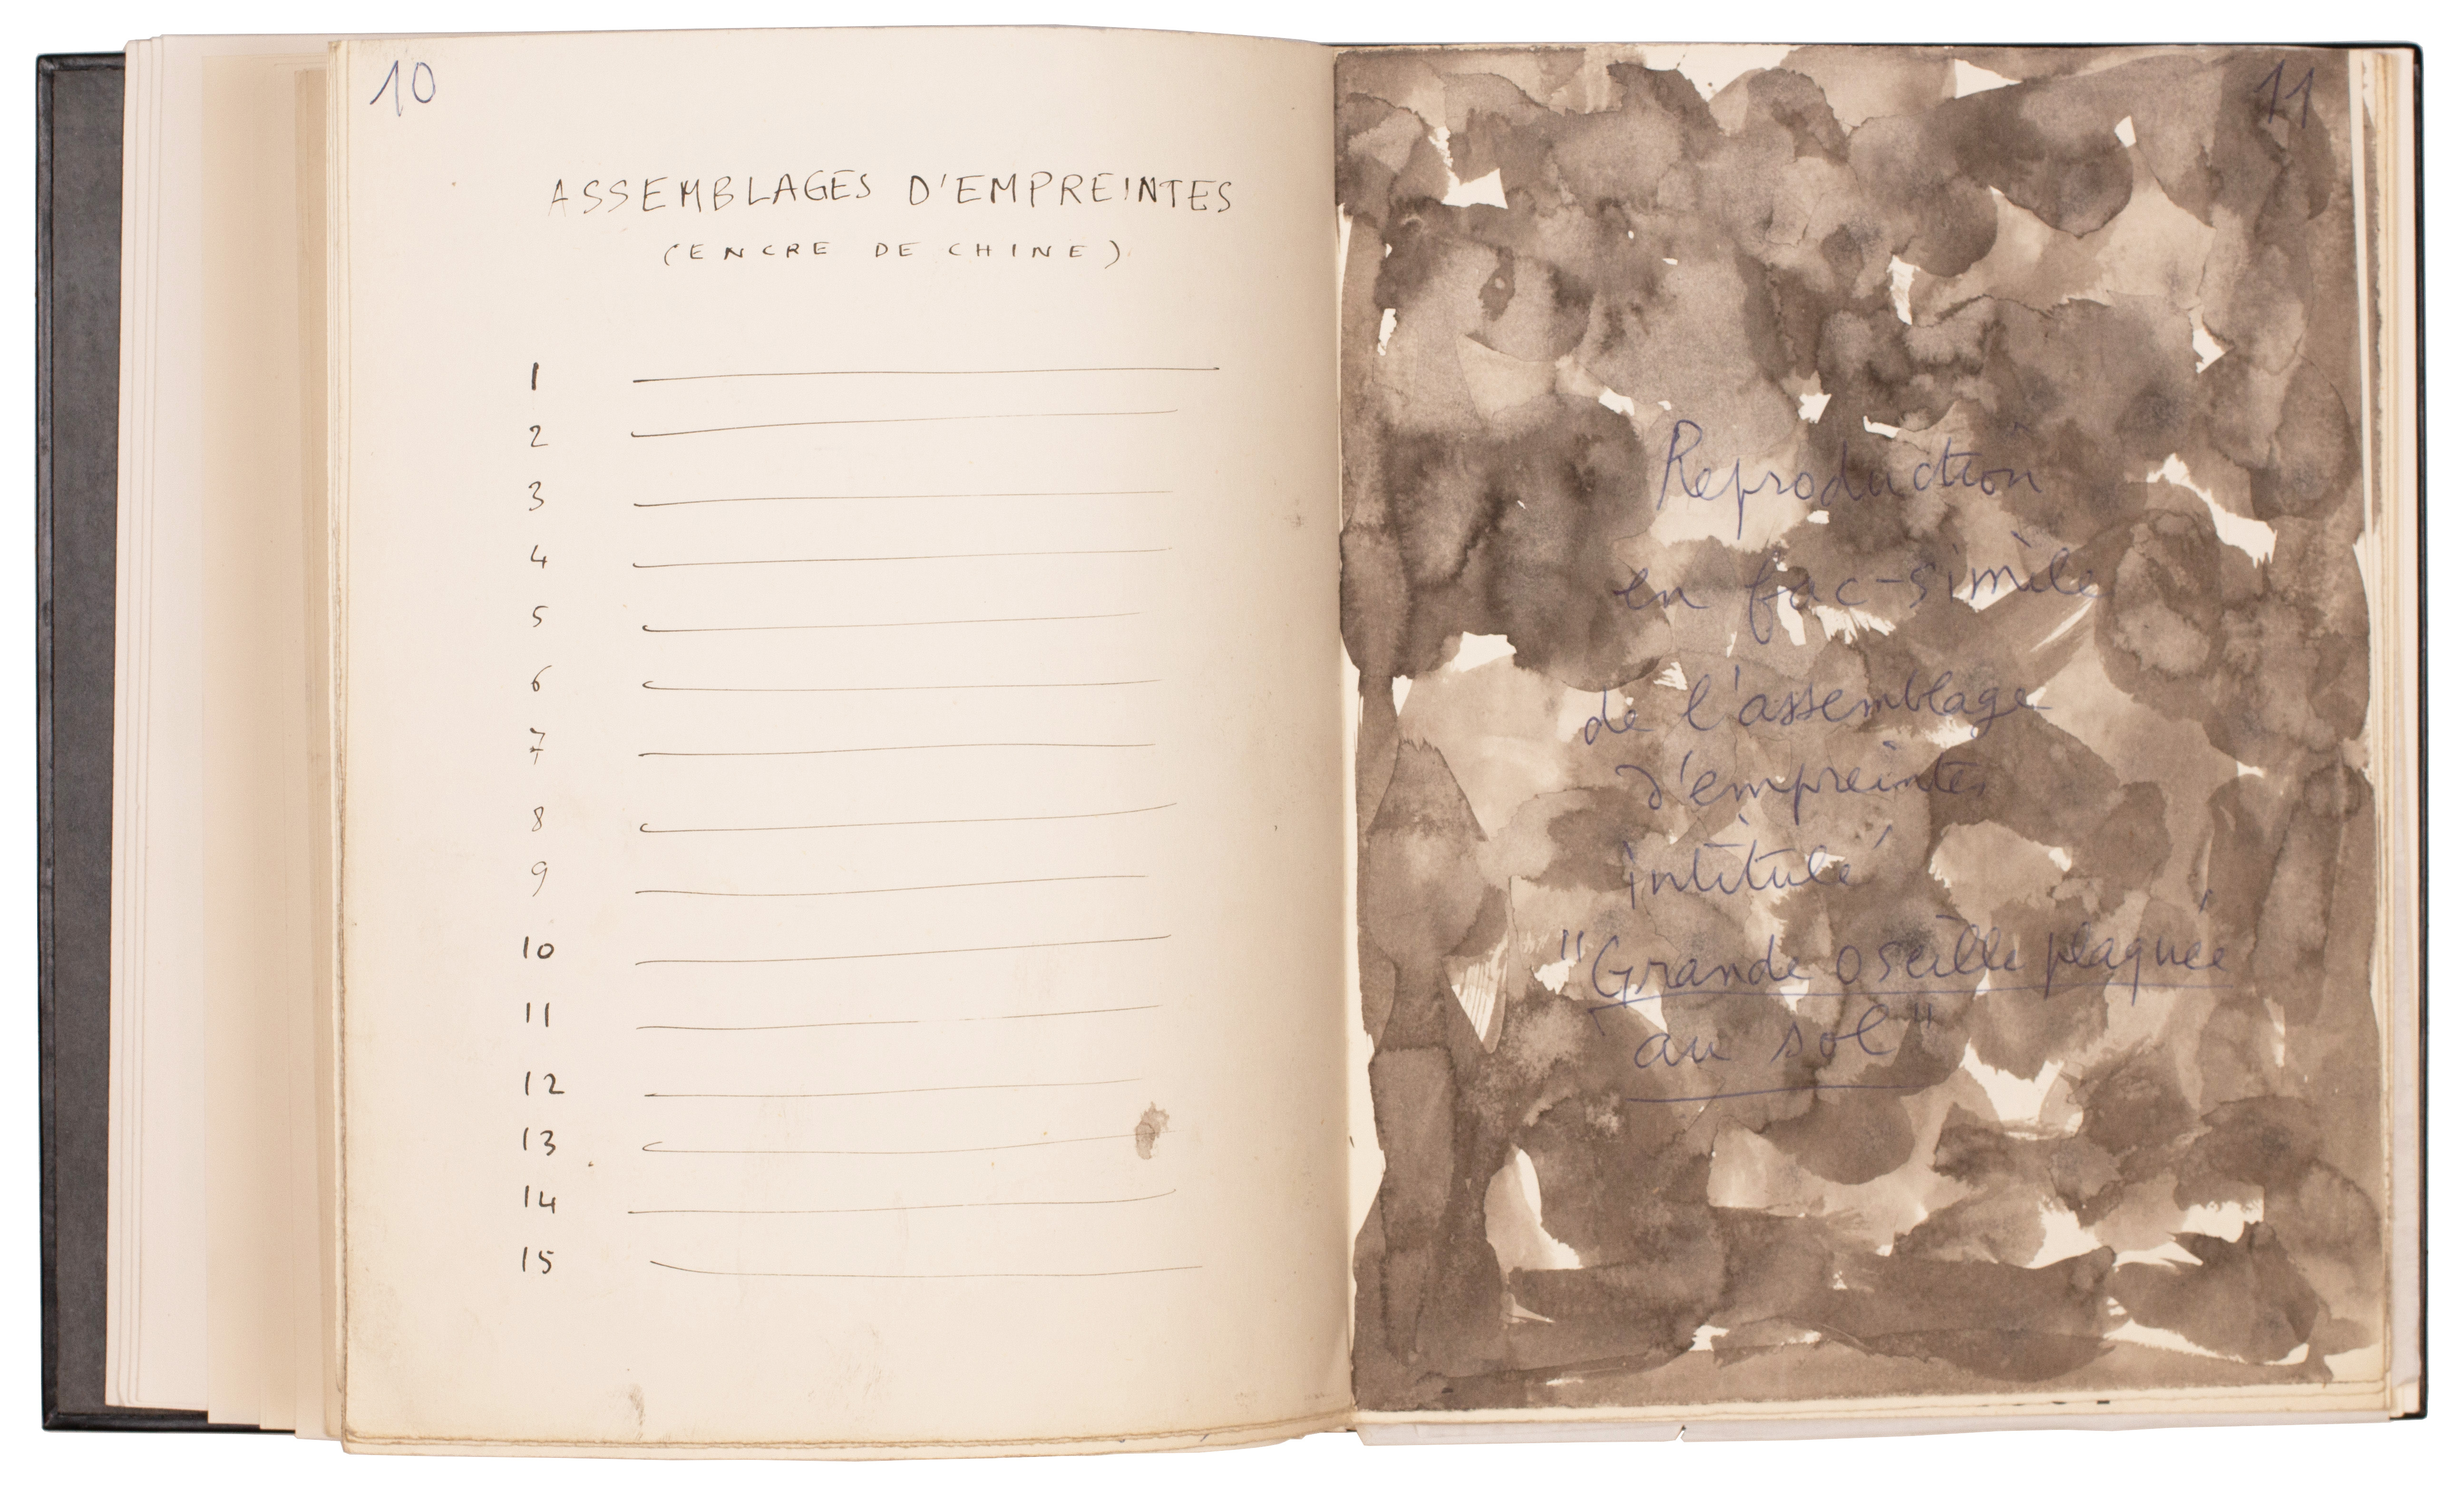 10
ASSEMBLAGES D'EMPREINTES
(ENCRE DE CHINE)
1
2
3
4
5
6
7
8
9
10
11
12
13
14
15
11
Reproduction
en fac-similé
de l'assemblage
d'empreintes
intitulé
"Grande oseille plaquée
au sol"